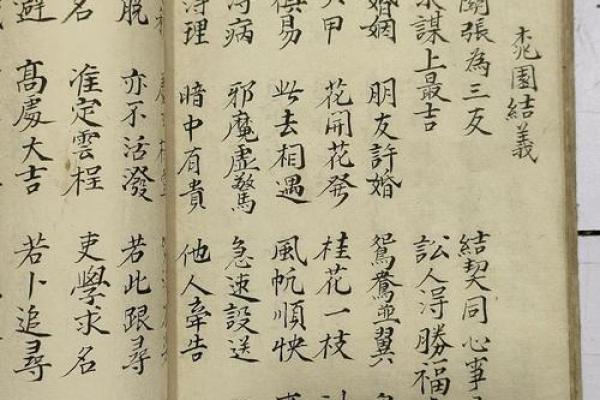 桃園結義
關張為三友 結契同心事
求謀上最吉 訟人淂勝福
婚姻 朋友許婚 鴛鴦並翼
甲 花開花發 桂花一枝
易 此去相遇 風帆順快
病 邪魔虛驚 急速設送
淂理 暗中有貴 他人牽告
脫 亦不活潑 若此跟尋
名 准定雲桯 吏學求名
避 高處大吉 若卜追尋